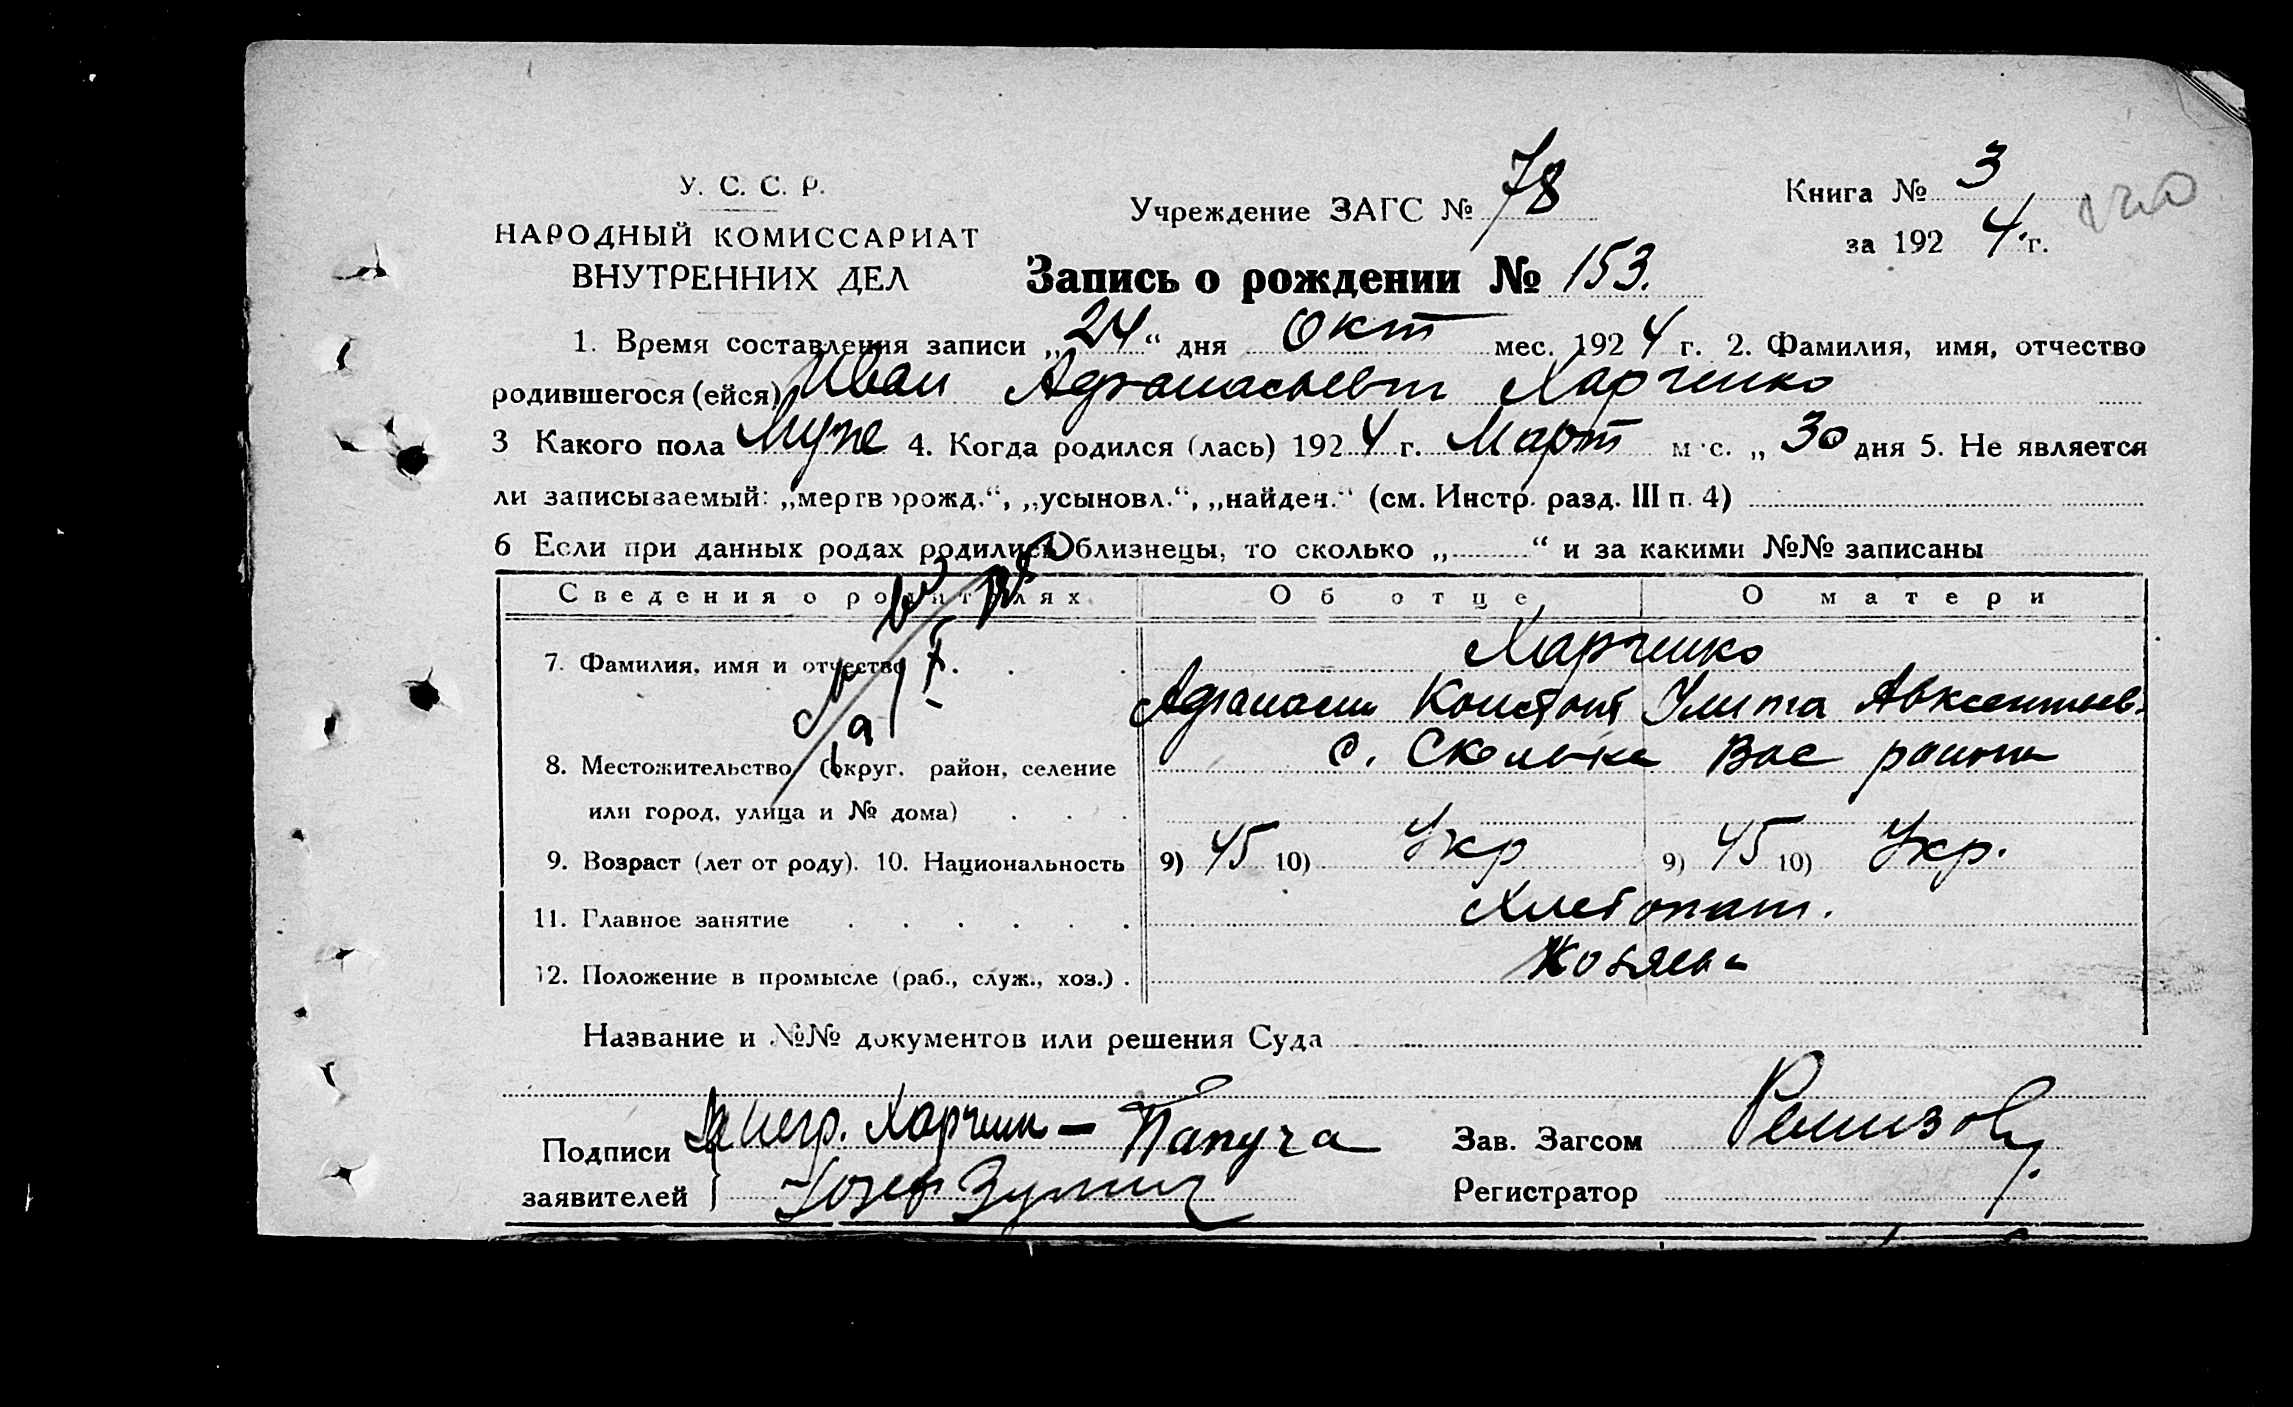 У. С. С. Р.
НАРОДНЫЙ КОМИССАРИАТ
ВНУТРЕННИХ ДЕЛ
Учреждение ЗАГС № 78
Книга № 3
за 192 4 г.
Запись о рождении № 153.
1. Время составления записи „24“ дня Окт мес. 1924 г. 2. Фамилия, имя, отчество
родившегося (ейся) Иван Афанасьевич Харченко
3 Какого пола Муже 4. Когда родился (лась) 1924 г. Март мес. „30 дня 5. Не является
ли записываемый: „мертворожд.“, „усыновл.“, „найден.“ (см. Инстр. разд. III п. 4)
6 Если при данных родах родились близнецы, то сколько „ “ и за какими №№ записаны
Сведения о родителях. Об отце О матери
7. Фамилия, имя и отчество Харченко
Афанасий Констант Улита Авксентьев.
8. Местожительство (округ, район, селение с. Вас района
или город, улица и № дома)
9. Возраст (лет от роду). 10. Национальность 9) 45 10) Укр 9) 45 10) Укр.
11. Главное занятие Хлебопаш.
12. Положение в промысле (раб., служ., хоз.) . Хозяева
Название и №№ документов или решения Суда
Подписи За негр. Харченк — Папуча Зав. Загсом Ремизов
заявителей Регистратор